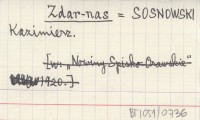 Zdar-nas = SOSNOWSKI
Kazimierz.
[w: „Nowiny Spisko Orawskie"
1920.]
BJ 1051/0736